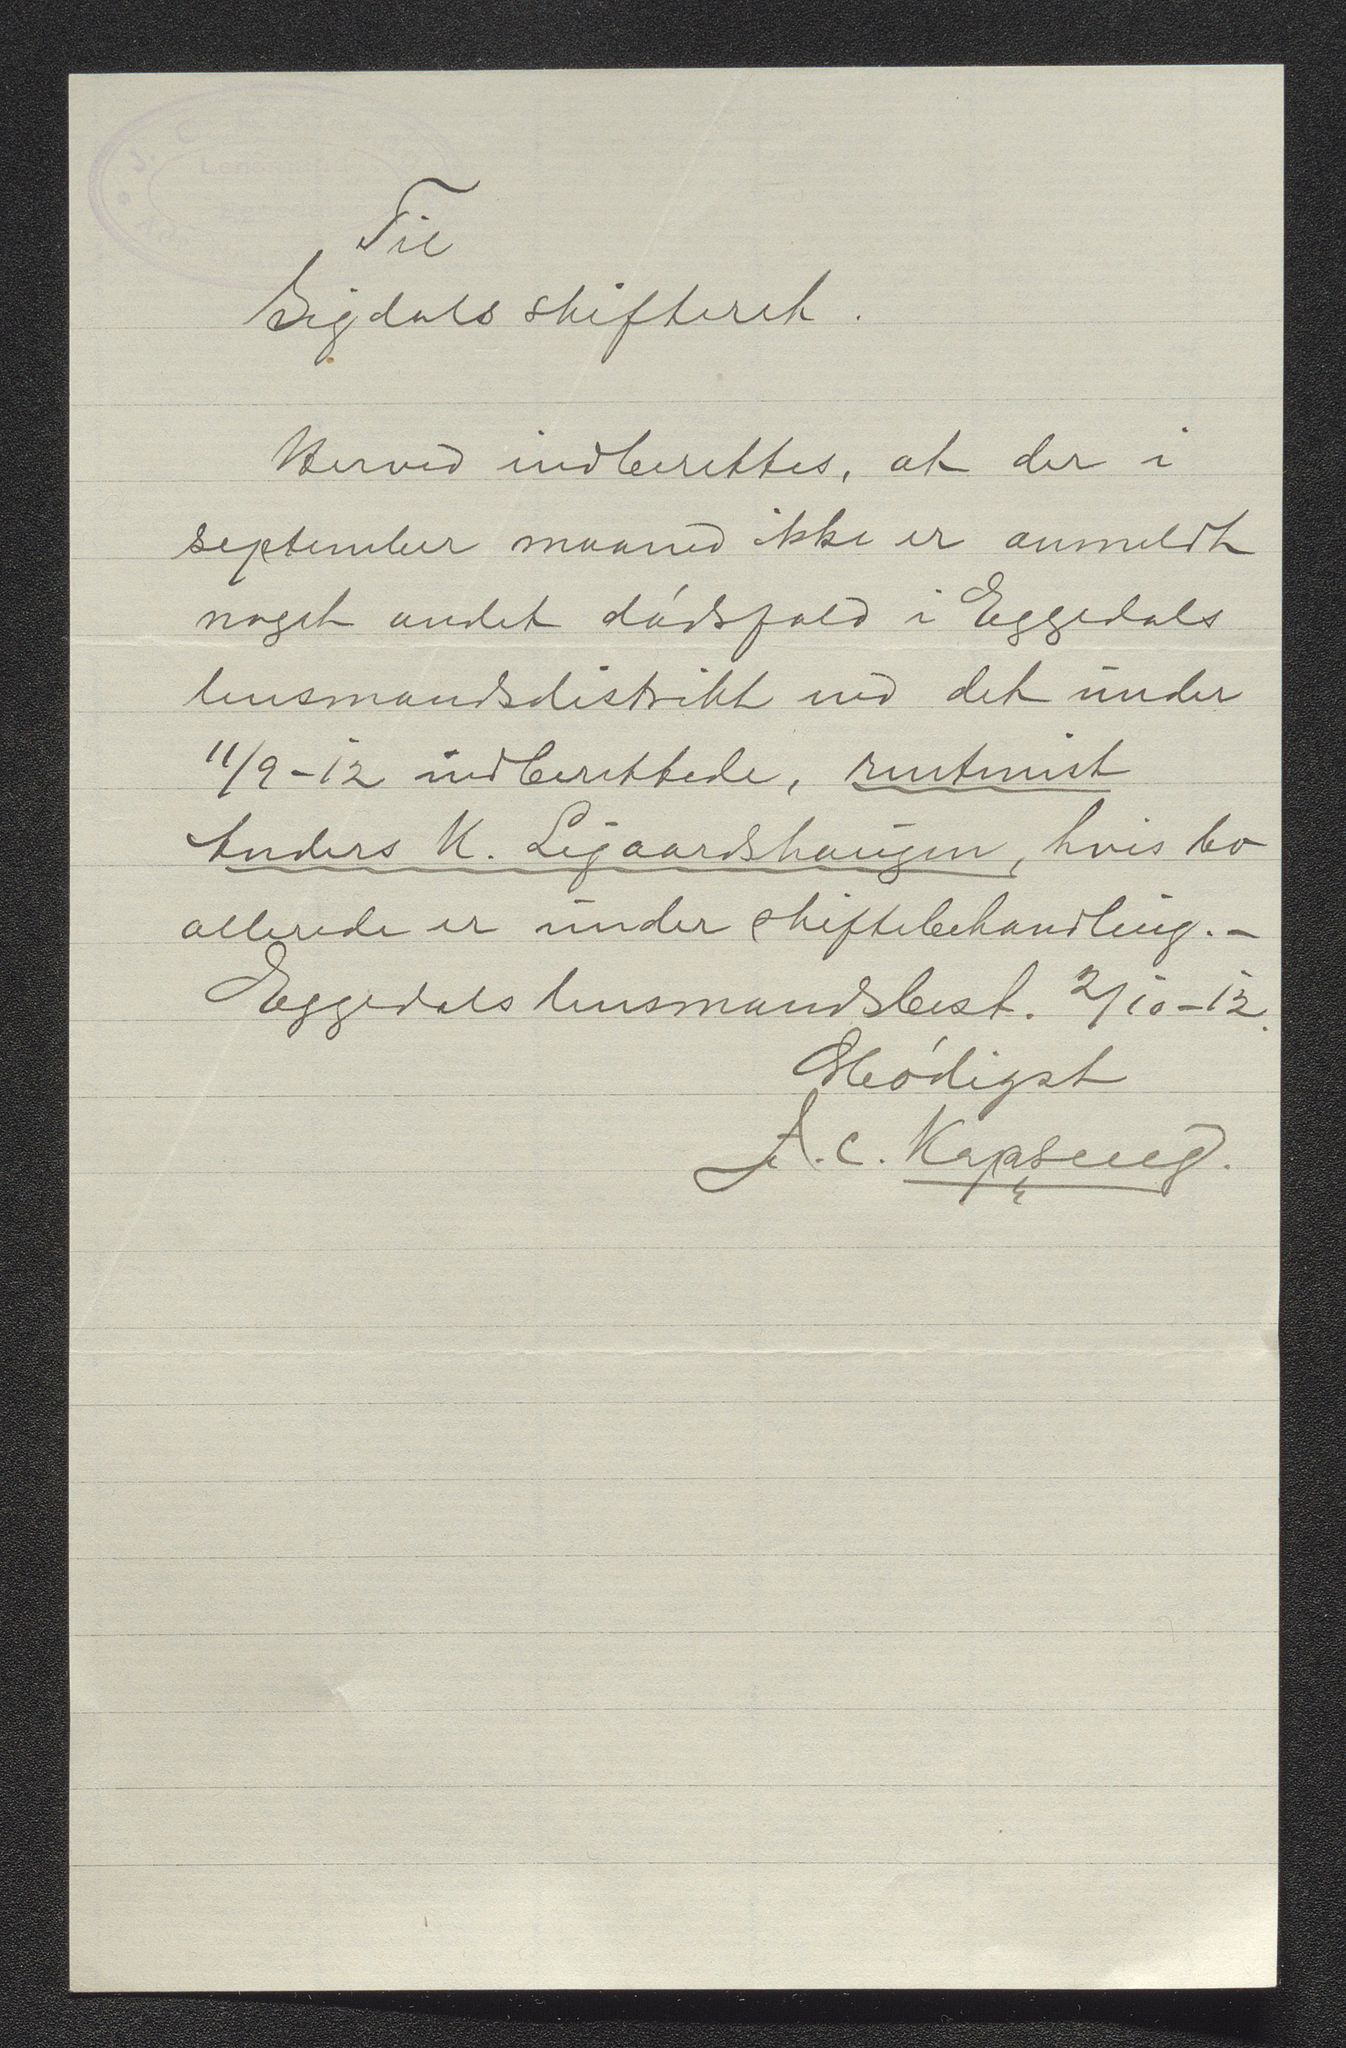 Til
Sigdals skifteret.
Herved indberettes, at der i
september maaned ikke er anmeldt
noget andet dødsfald i Eggedals
lensmandsdistrikt end det under
11/9-12 indberettede, rentenist
Anders K. Ligaardshaugen, hvis bo
allerede er under skiftebehandling.-
Eggedals lensmandsbest. 2/10-12.
Ærbødigst
J. C. Kopseng.